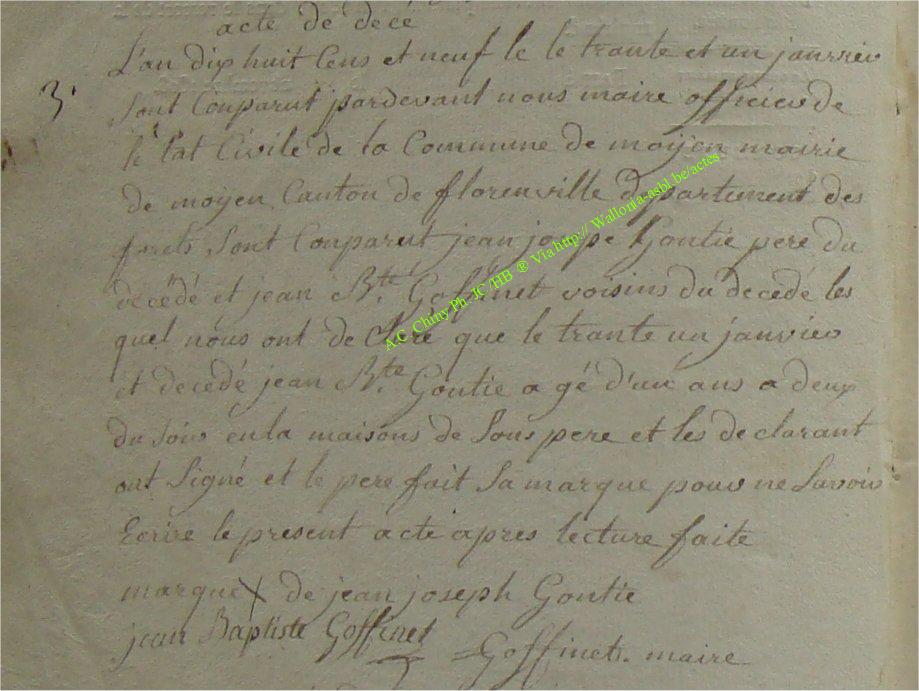 acte de decé
3.
L'an dix huit Cens et neuf le le trante et un janvier
sont Conparut pardevant nous maire officier de
le tat Civile de la Commune de moÿen mairie
de moÿen Canton de florenville departement des
sont Conparut jean jospe Gontie pere du
decédé et jean Bte Goffinet voisins du decedé les
quel nous ont de Claré que le trante un janvier
et decedé jean Bte Gontie a gé d'un ans a deux
du soir en la maisons de Sons pere et les de clarant
ont Signé et le pere fait sa marque pour ne Savoir
Ecrire le present acte apres lecture faite
marque X de jean joseph Gontie
jean Baptiste Goffinet
Goffinet. maire
A.C. Chiny Ph. JC /HB ® Via http:// Wallonia-asbl.be/actes